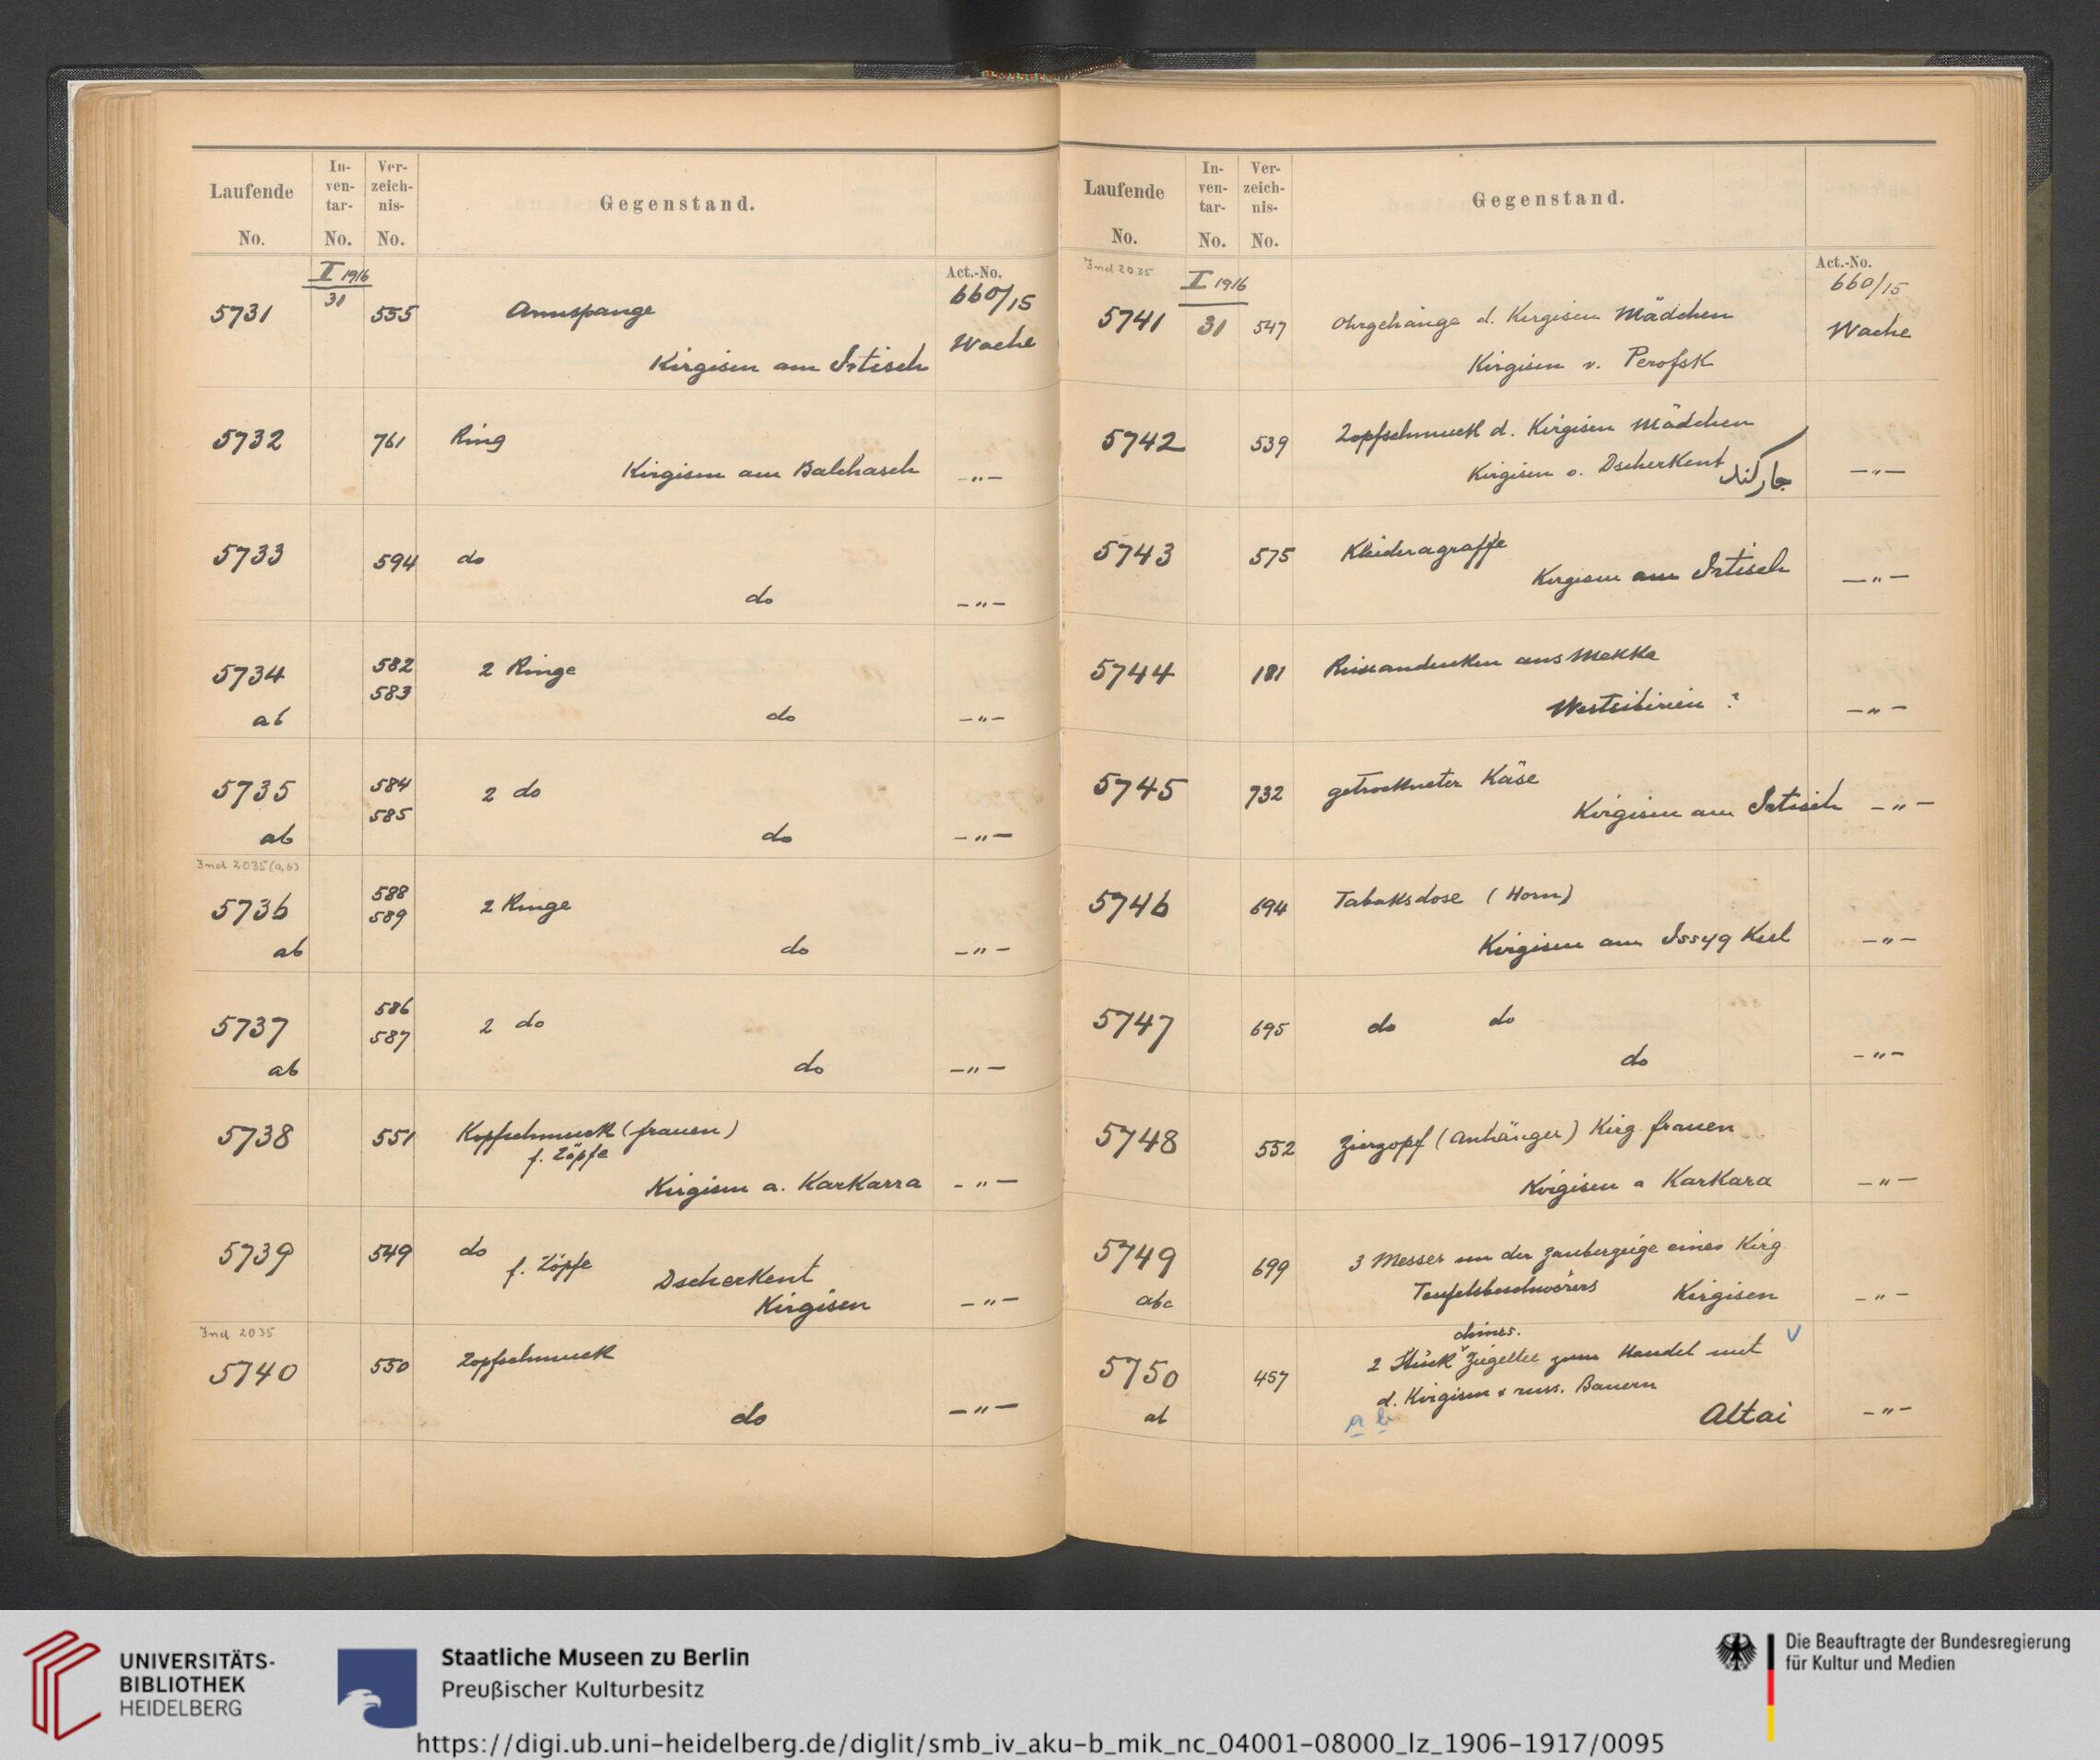 Laufende No. In-ven-tar-No. Ver-zeich-nis-No. Gegenstand.
I 1916 Act.-No.
5731 31 555 Armspange 660/15
Kirgisen am Irtisch Wache
5732 761 Ring
Kirgisen am Balchasch -"-
5733 594 do
do -"-
5734 582 2 Ringe
583
ab do -"-
5735 584 2 do
585
ab do -"-
Ind 2035 (a,b)
5736 588 2 Ringe
589
ab do -"-
5737 586 2 do
587
ab do -"-
5738 551 Kopfschmuck (frauen)
f. Zöpfe
Kirgisen a. Karkarra -"-
5739 549 do
f. Zöpfe Dscherkent
Kirgisen -"-
Ind 2035
5740 550 Zopfschmuck
do -"-
Laufende No. In-ven-tar-No. Ver-zeich-nis-No. Gegenstand.
Ind 2035 I 1916 Act.-No.
5741 31 547 Ohrgehänge d. Kirgisen Mädchen 660/15
Kirgisen v. Perofsk Wache
5742 539 Zopfschmuck d. Kirgisen Mädchen
Kirgisen v. Dscherkent جارکند -"-
5743 575 Kleideragraffe
Kirgisen am Irtisch -"-
5744 181 Reiseandenken aus Mekka
Westsibirien ? -"-
5745 732 getrockneter Käse
Kirgisen am Irtisch -"-
5746 694 Tabaksdose (Horn)
Kirgisen am Issyq Kul -"-
5747 695 do do
do -"-
5748 552 Zierzopf (Anhänger) Kirg frauen
Kirgisen a Karkara -"-
5749 699 3 Messer von der Zaubergeige eines Kirg
abc Teufelsbeschwörers Kirgisen -"-
chines.
5750 457 2 Stück Ziegeltee zum Handel mit v
d. Kirgisen & russ. Bauern
ab a b Altai -"-
UNIVERSITÄTS-
BIBLIOTHEK
HEIDELBERG
Staatliche Museen zu Berlin
Preußischer Kulturbesitz
Die Beauftragte der Bundesregierung
für Kultur und Medien
https://digi.ub.uni-heidelberg.de/diglit/smb_iv_aku-b_mik_nc_04001-08000_lz_1906-1917/0095